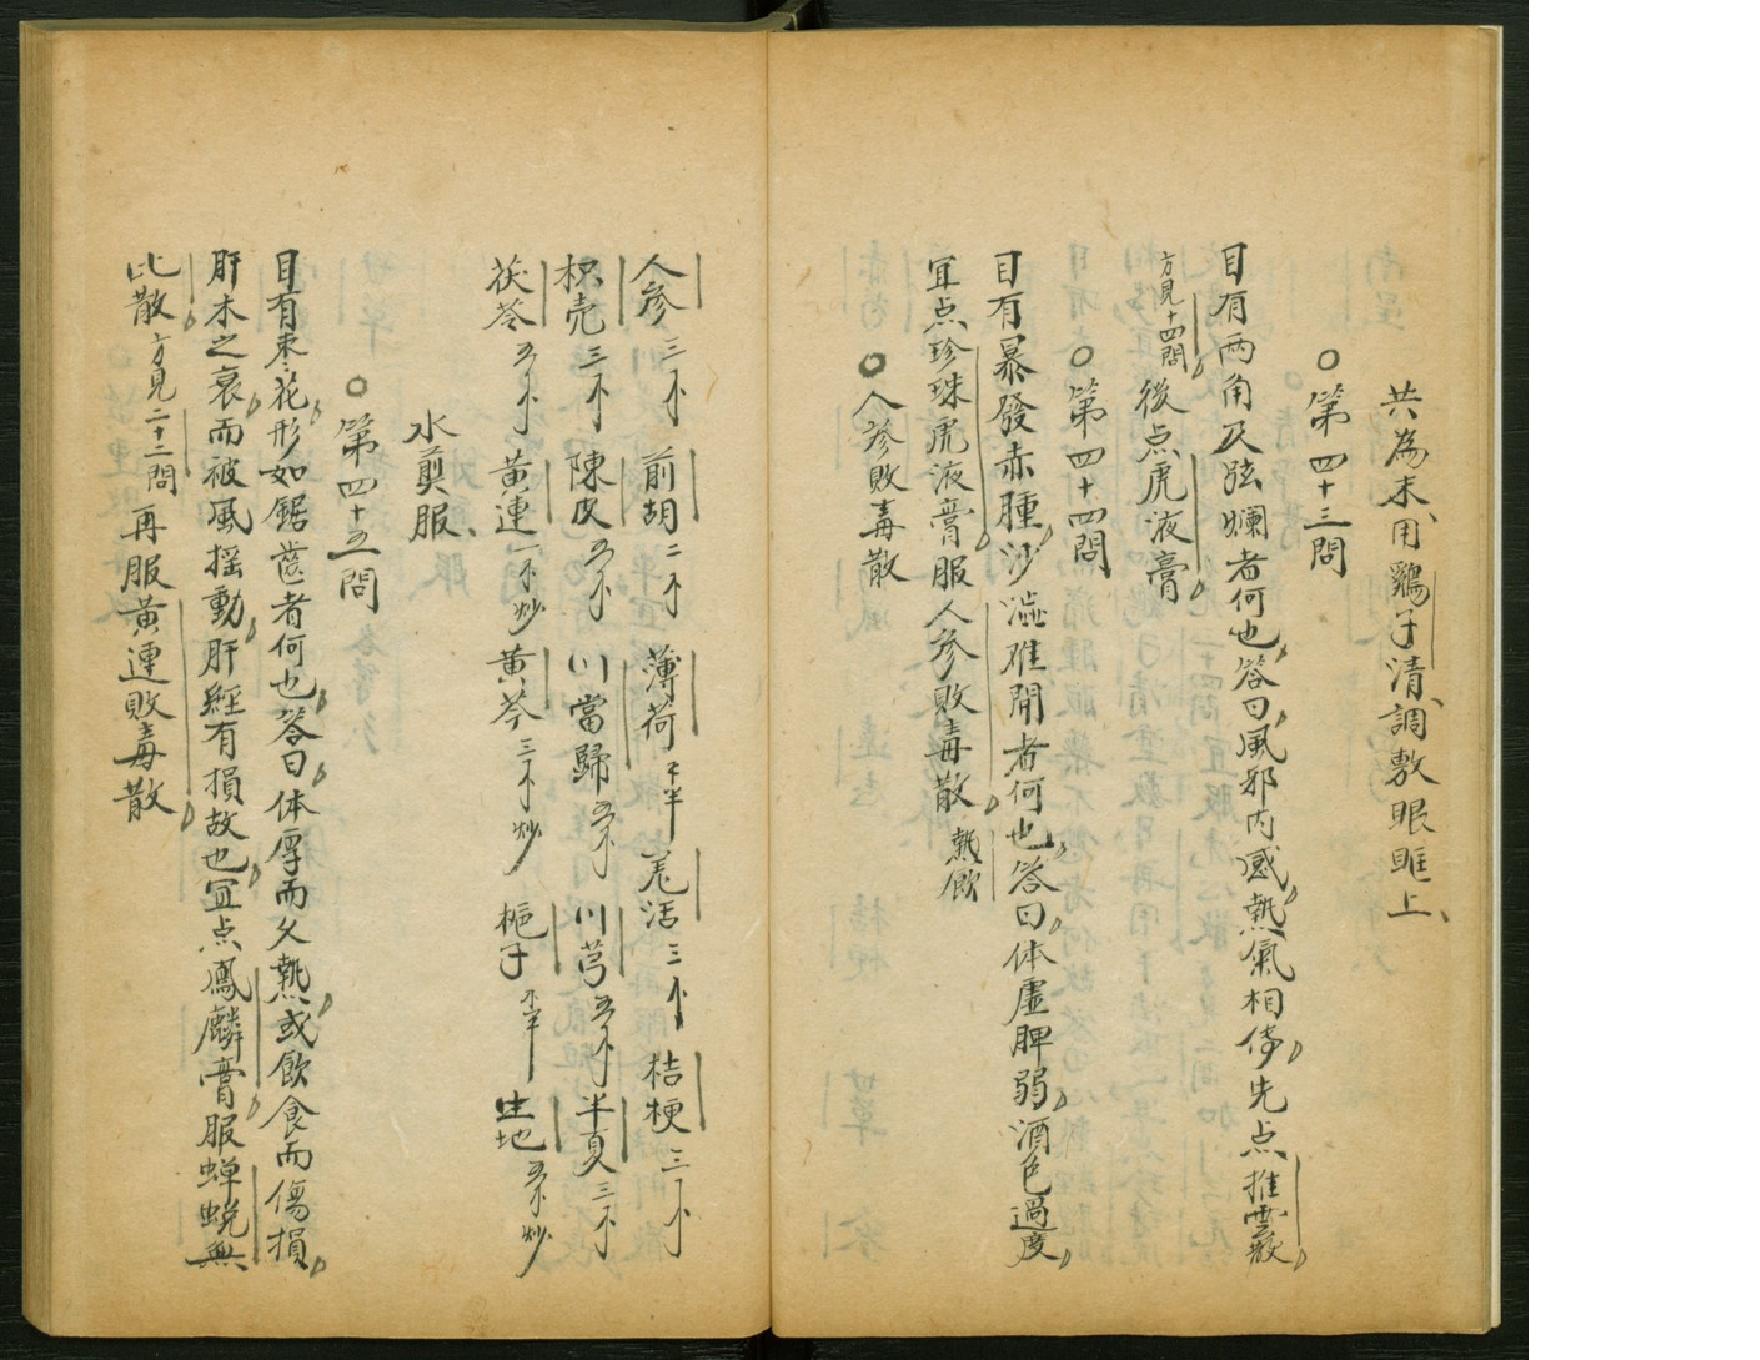 共為末、用鷄子清、調敷眼眶上、
○第四十三問
目有兩角及眩爛者何也答曰風邪内感熱氣相侵先点推雲散
方見十四問後点虎液膏
○第四十四問
目有暴發赤腫沙澁难開者何也答曰体虚脾弱酒色過度
宜点珍珠虎液膏服人参敗毒散熱飲
○人参敗毒散
人参三 前胡二 薄荷半 羌活三 桔梗三
枳壳三 陳皮五 川當歸 川芎五 半夏三
茯苓五 黄連一炒 黄芩三炒 梔子半 生地炒
水煎服、
○第四十五問
目有枣花形如鋸齒者何也答曰体厚而久熱或飲食而傷損
肝木之衰而被風揺動肝經有損故也宜点鳳麟膏服蝉蜕無
比散方見二十二問再服黄連敗毒散